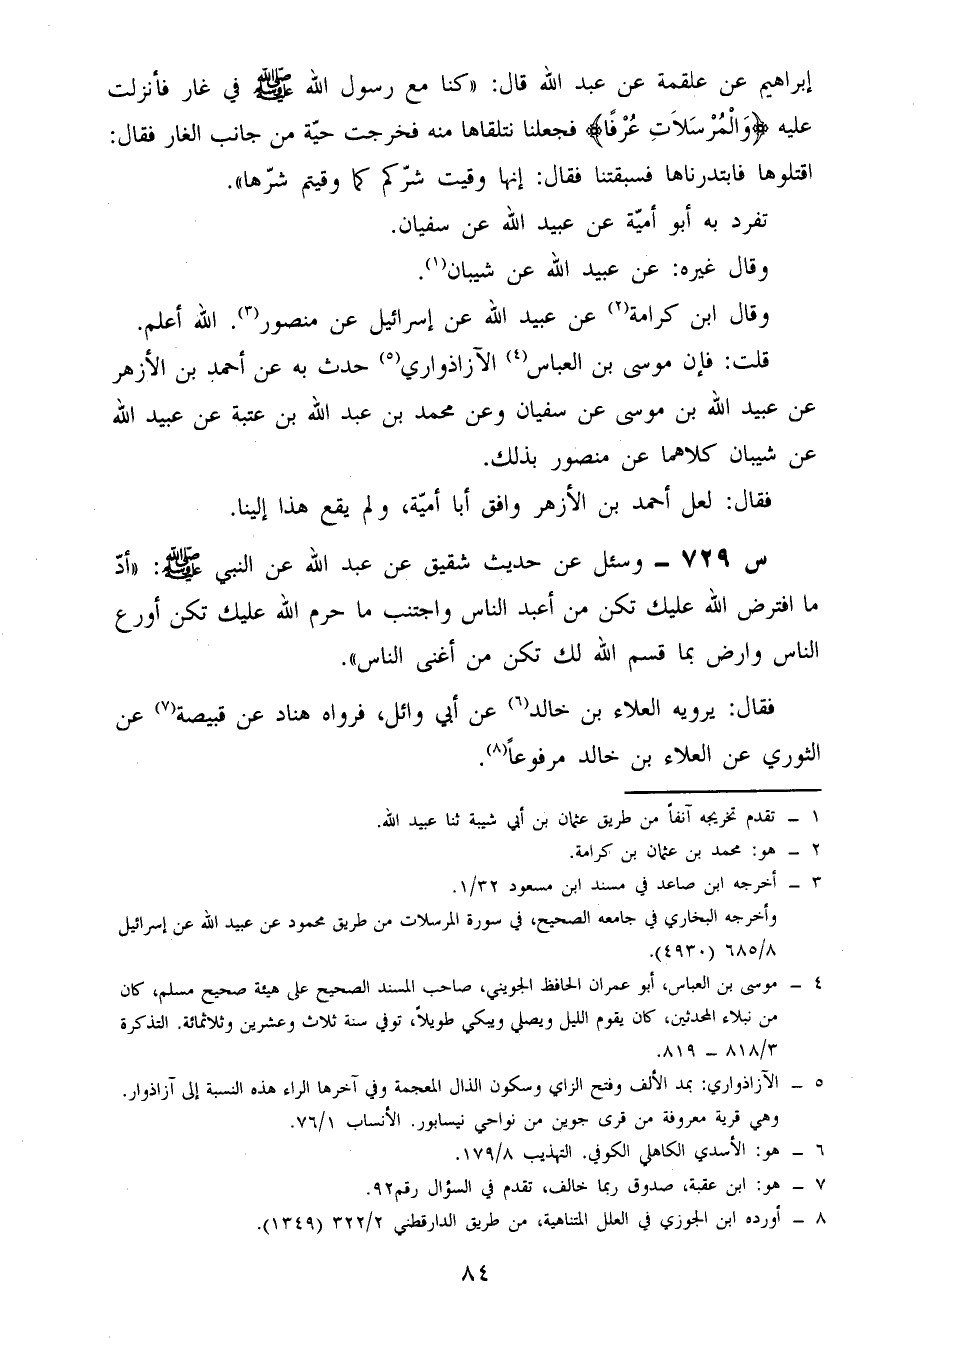 إبراهيم عن علقمة عن عبد الله قال: «كنا مع رسول الله ﷺ في غار فأنزلت
عليه ﴿وَالْمُرْسَلَاتِ عُرْفًا﴾ فجعلنا نتلقاها منه فخرجت حيّة من جانب الغار فقال:
اقتلوها فابتدرناها فسبقتنا فقال: إنها وقيت شرّكم كما وقيتم شرّها».
تفرد به أبو أميّة عن عبيد الله عن سفيان.
وقال غيره: عن عبيد الله عن شيبان(١).
وقال ابن كرامة(٢) عن عبيد الله عن إسرائيل عن منصور(٣). الله أعلم.
قلت: فإن موسى بن العباس(٤) الآزاذواري(٥) حدث به عن أحمد بن الأزهر
عن عبيد الله بن موسى عن سفيان وعن محمد بن عبد الله بن عتبة عن عبيد الله
عن شيبان كلاهما عن منصور بذلك.
فقال: لعل أحمد بن الأزهر وافق أبا أميّة، ولم يقع هذا إلينا.
س ٧٢٩ ـ وسئل عن حديث شقيق عن عبد الله عن النبي ﷺ: «أدّ
ما افترض الله عليك تكن من أعبد الناس واجتنب ما حرم الله عليك تكن أورع
الناس وارض بما قسم الله لك تكن من أغنى الناس».
فقال: يرويه العلاء بن خالد(٦) عن أبي وائل، فرواه هناد عن قبيصة(٧) عن
الثوري عن العلاء بن خالد مرفوعاً(٨).
١ ـ تقدم تخريجه آنفاً من طريق عثمان بن أبي شيبة ثنا عبيد الله.
٢ ـ هو: محمد بن عثمان بن كرامة.
٣ ـ أخرجه ابن صاعد في مسند ابن مسعود ١/٣٢.
وأخرجه البخاري في جامعه الصحيح، في سورة المرسلات من طريق محمود عن عبيد الله عن إسرائيل
٦٨٥/٨ (٤٩٣٠).
٤ ـ موسى بن العباس، أبو عمران الحافظ الجويني، صاحب المسند الصحيح على هيئة صحيح مسلم، كان
من نبلاء المحدثين، كان يقوم الليل ويصلي ويبكي طويلاً، توفي سنة ثلاث وعشرين وثلاثمائة. التذكرة
٨١٨/٣ ـ ٨١٩.
٥ ـ الآزاذواري: بمد الألف وفتح الزاي وسكون الذال المعجمة وفي آخرها الراء هذه النسبة إلى آزاذوار.
وهي قرية معروفة من قرى جوين من نواحي نيسابور. الأنساب ٧٦/١.
٦ ـ هو: الأسدي الكاهلي الكوفي. التهذيب ١٧٩/٨.
٧ ـ هو: ابن عقبة، صدوق ربما خالف، تقدم في السؤال رقم٩٢.
٨ ـ أورده ابن الجوزي في العلل المتناهية، من طريق الدارقطني ٣٢٢/٢ (١٣٤٩).
٨٤